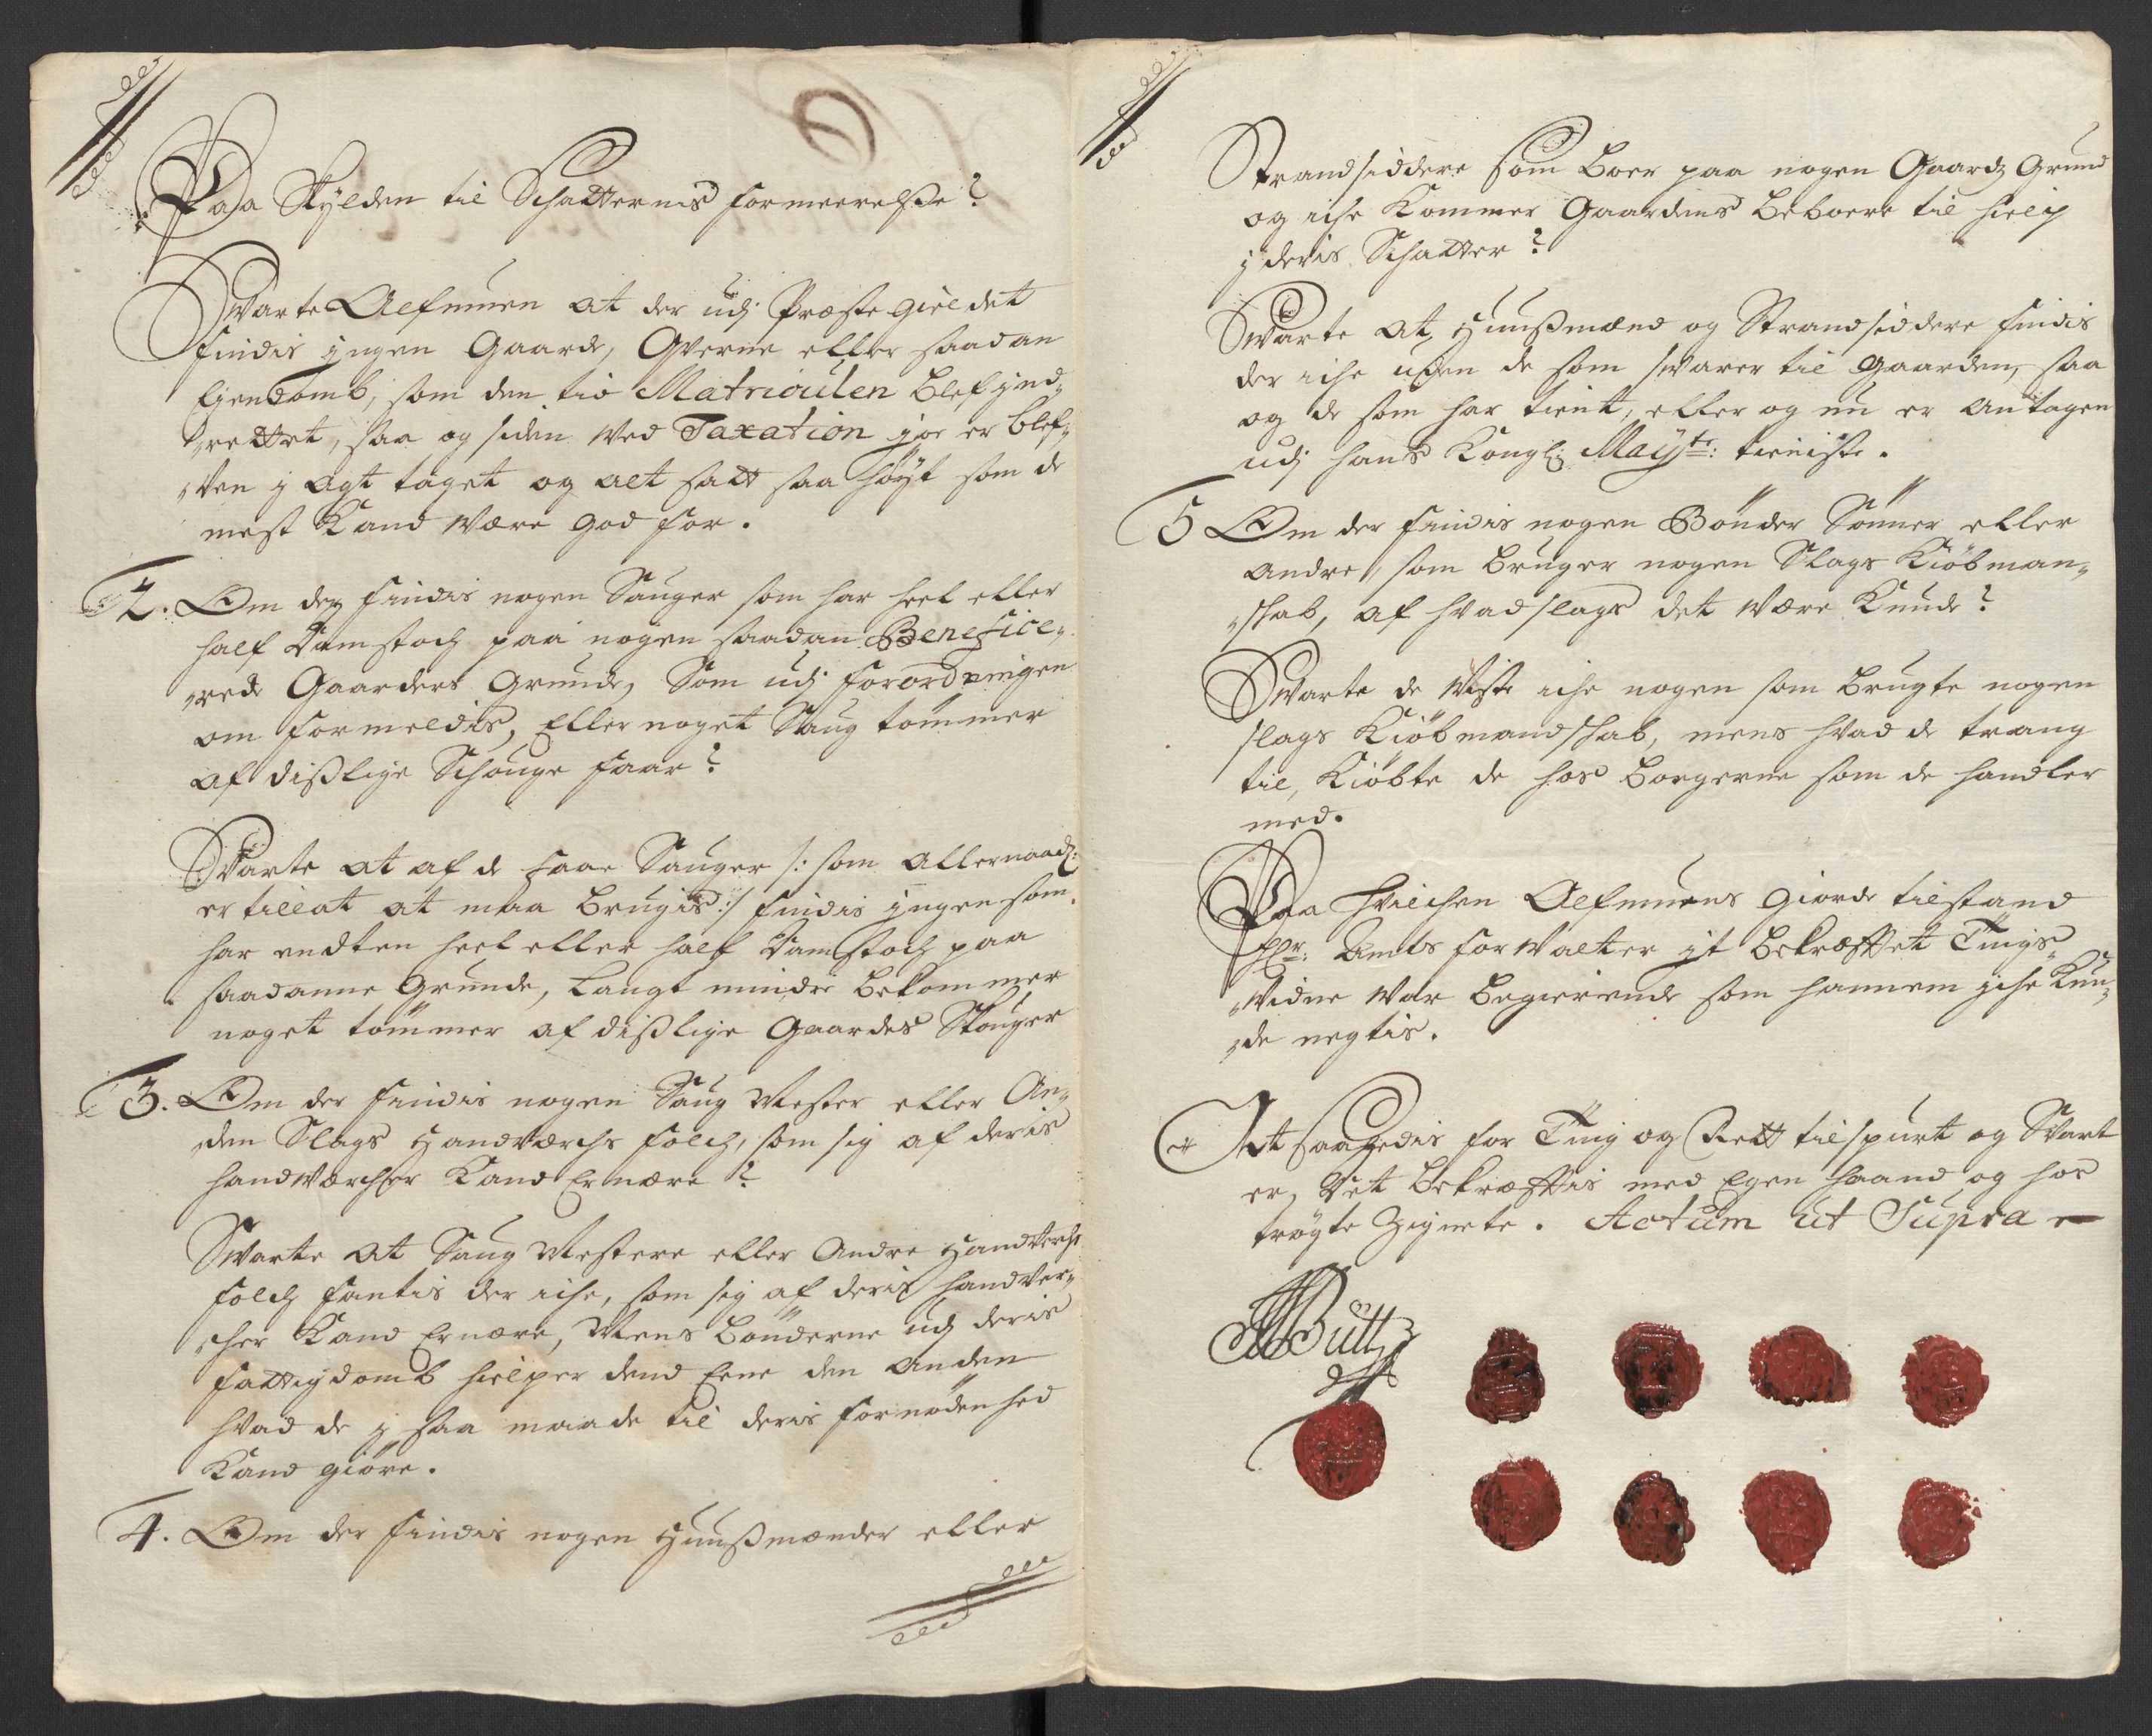 Paa Skylden til Schatternis formeerelsse?
Swarte Alfmuen at der udj Præstegieldet
findis jngen Gaarde, Qverne eller saadan
Eyendomb, som den tid Matriculen blef jnd„
„rettet, saa og siden ved Taxation jo er blef„
„ven j agt taget og alt satt saa høyt som de
mest Kand være god for.
2. Om der findis nogen Sauger som har heel eller
half Damstoch paa nogen saadan Benefice„
„rede Gaarders Grund, Som udj forordningen
om formeldis, Eller noget Saug tømmer
af dißlige Schouge faar?
Swarte at af de faae Sauger /: som allernaad:
er tillat at maa brugis :/ findis jngen som
har endten heel eller half Damstoch paa
saadanne Grunde, Langt mindre bekommer
noget tømmer af dißlige Gaardes Skouger
3. Om der findis nogen Saug Mester eller An„
„den Slags Handværchs folch, som sig af deris
handværcher Kand Ernære?
Swarte at Saug Mestere eller Andre Handverchs
folch fantis der iche, som sig af deris handver„
„cher Kand Ernære, Mens bønderne udj deris
fattigdomb hielper dend Eene den anden
hvad de j saa maade til deris fornødenhed
Kand giøre.
4. Om der findis nogen Huußmænder eller
Strandsiddere som boer paa nogen Gaards Grund
og iche Kommer Gaardens beboere til hielp
j deris Schatter?
Swarte at Huußmænd og Strandsiddere findis
der iche uden de som svarer til Gaarden, saa
og de som har tient, eller og nu er antagen
udj hans Kongl: Mayts: tieniste.
5 Om der findis nogen Bønder Sønner eller
andre, som bruger nogen Slags Kiøbman„
„skab, af hvad slags det være Kunde?
Swarte de viste iche nogen som brugte nogen
slags Kiøbmandskab, mens hvad de trang
til, Kiøbte de hos borgerne som de handler
med.
Paa hvilchen Alfmuens giorde tilstand
Hr: Amts forvalter jt bekræfftet Tings„
„Vidne var begierende som hannem iche Kun„
„de negtis.
At saaledis for Ting og Rett tilspurt og Svart
er, Det bekræfftis med Egen haand og hos
trøgte Zignete. Actum ut Supra